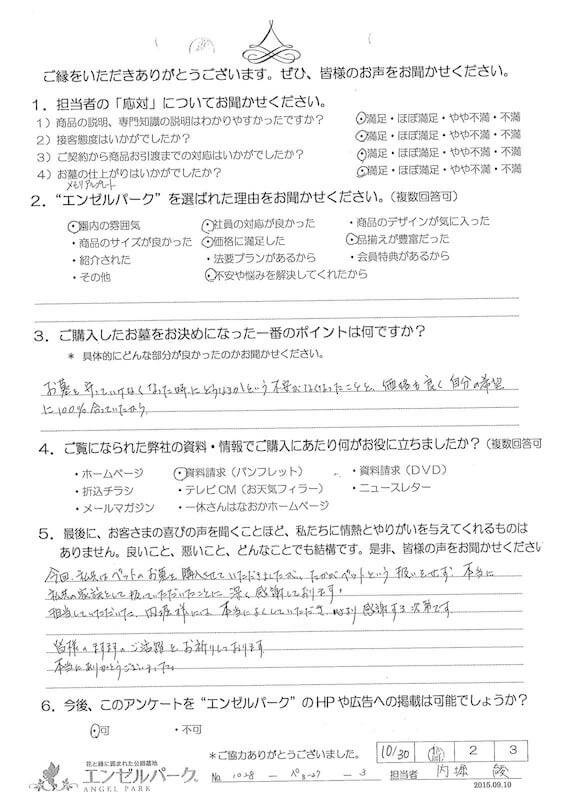 ご縁をいただきありがとうございます。ぜひ、皆様のお声をお聞かせください。
1. 担当者の「応対」についてお聞かせください。
1）商品の説明、専門知識の説明はわかりやすかったですか？ ・満足・ほぼ満足・やや不満・不満
2）接客態度はいかがでしたか？ ・満足・ほぼ満足・やや不満・不満
3）ご契約から商品お引渡までの対応はいかがでしたか？ ・満足・ほぼ満足・やや不満・不満
4）お墓の仕上がりはいかがでしたか？ ・満足・ほぼ満足・やや不満・不満
メモリアルプレート
2. “エンゼルパーク”を選ばれた理由をお聞かせください。（複数回答可）
・園内の雰囲気 ・社員の対応が良かった ・商品のデザインが気に入った
・商品のサイズが良かった ・価格に満足した ・品揃えが豊富だった
・紹介された ・法要プランがあるから ・会員特典があるから
・その他 ・不安や悩みを解決してくれたから
3. ご購入したお墓をお決めになった一番のポイントは何ですか？
* 具体的にどんな部分が良かったのかお聞かせください。
お墓を守っていけなくなった時にどうなるか？という不安がなくなったことと、価格も良く自分の希望
に100%合っていたから
4. ご覧になられた弊社の資料・情報でご購入にあたり何がお役に立ちましたか？（複数回答可
・ホームページ ・資料請求（パンフレット） ・資料請求（DVD）
・折込チラシ ・テレビCM（お天気フィラー） ・ニュースレター
・メールマガジン ・一休さんはなおかホームページ
5. 最後に、お客さまの喜びの声を聞くことほど、私たちに情熱とやりがいを与えてくれるものは
ありません。良いこと、悪いこと、どんなことでも結構です。是非、皆様の声をお聞かせください
今回、私共はペットのお墓を購入させていただきましたが、たかがペットという扱いをせず、本当に
私共の家族として扱っていただいたことに深く感謝しております！
担当していただいた、内堀様には本当によくしていただき、心より感謝する次第です
皆様の益々のご活躍をお祈りしております
本当にありがとうございました。
6. 今後、このアンケートを“エンゼルパーク”のHPや広告への掲載は可能でしょうか？
・可 ・不可
*ご協力ありがとうございました。 10/30 2 3
花と緑に囲まれた公園墓地
エンゼルパーク
ANGEL PARK
No. 1028 - 3 担当者 内堀
2015.09.10